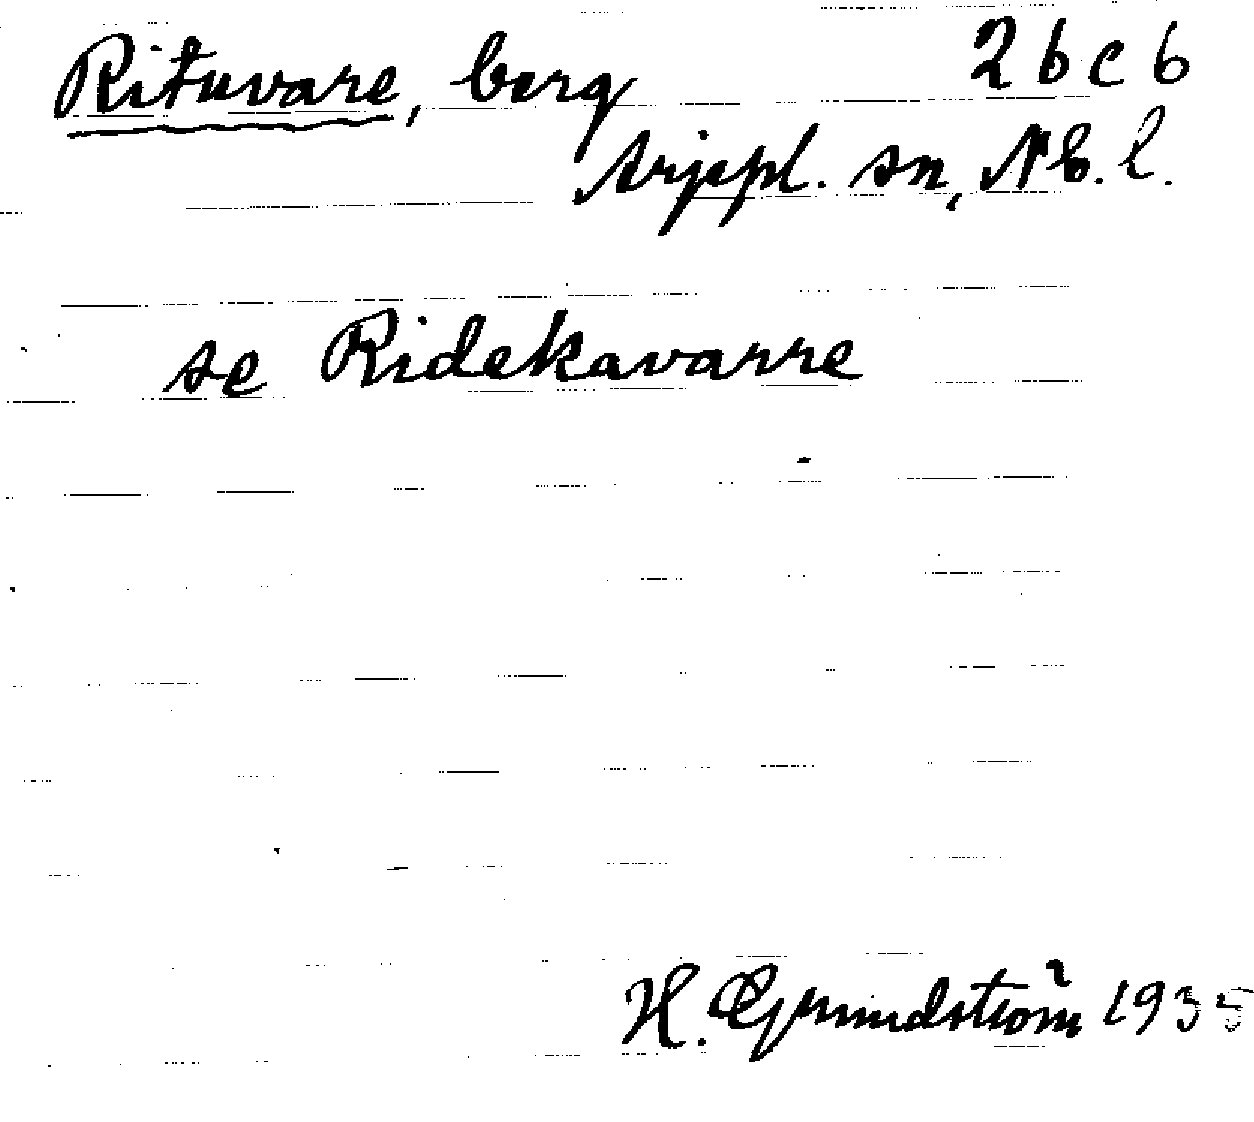 Rituvare, berg 26c6
Arjepl. sn, Nb. l.
se Ridekavarre
H. Grundström 1935